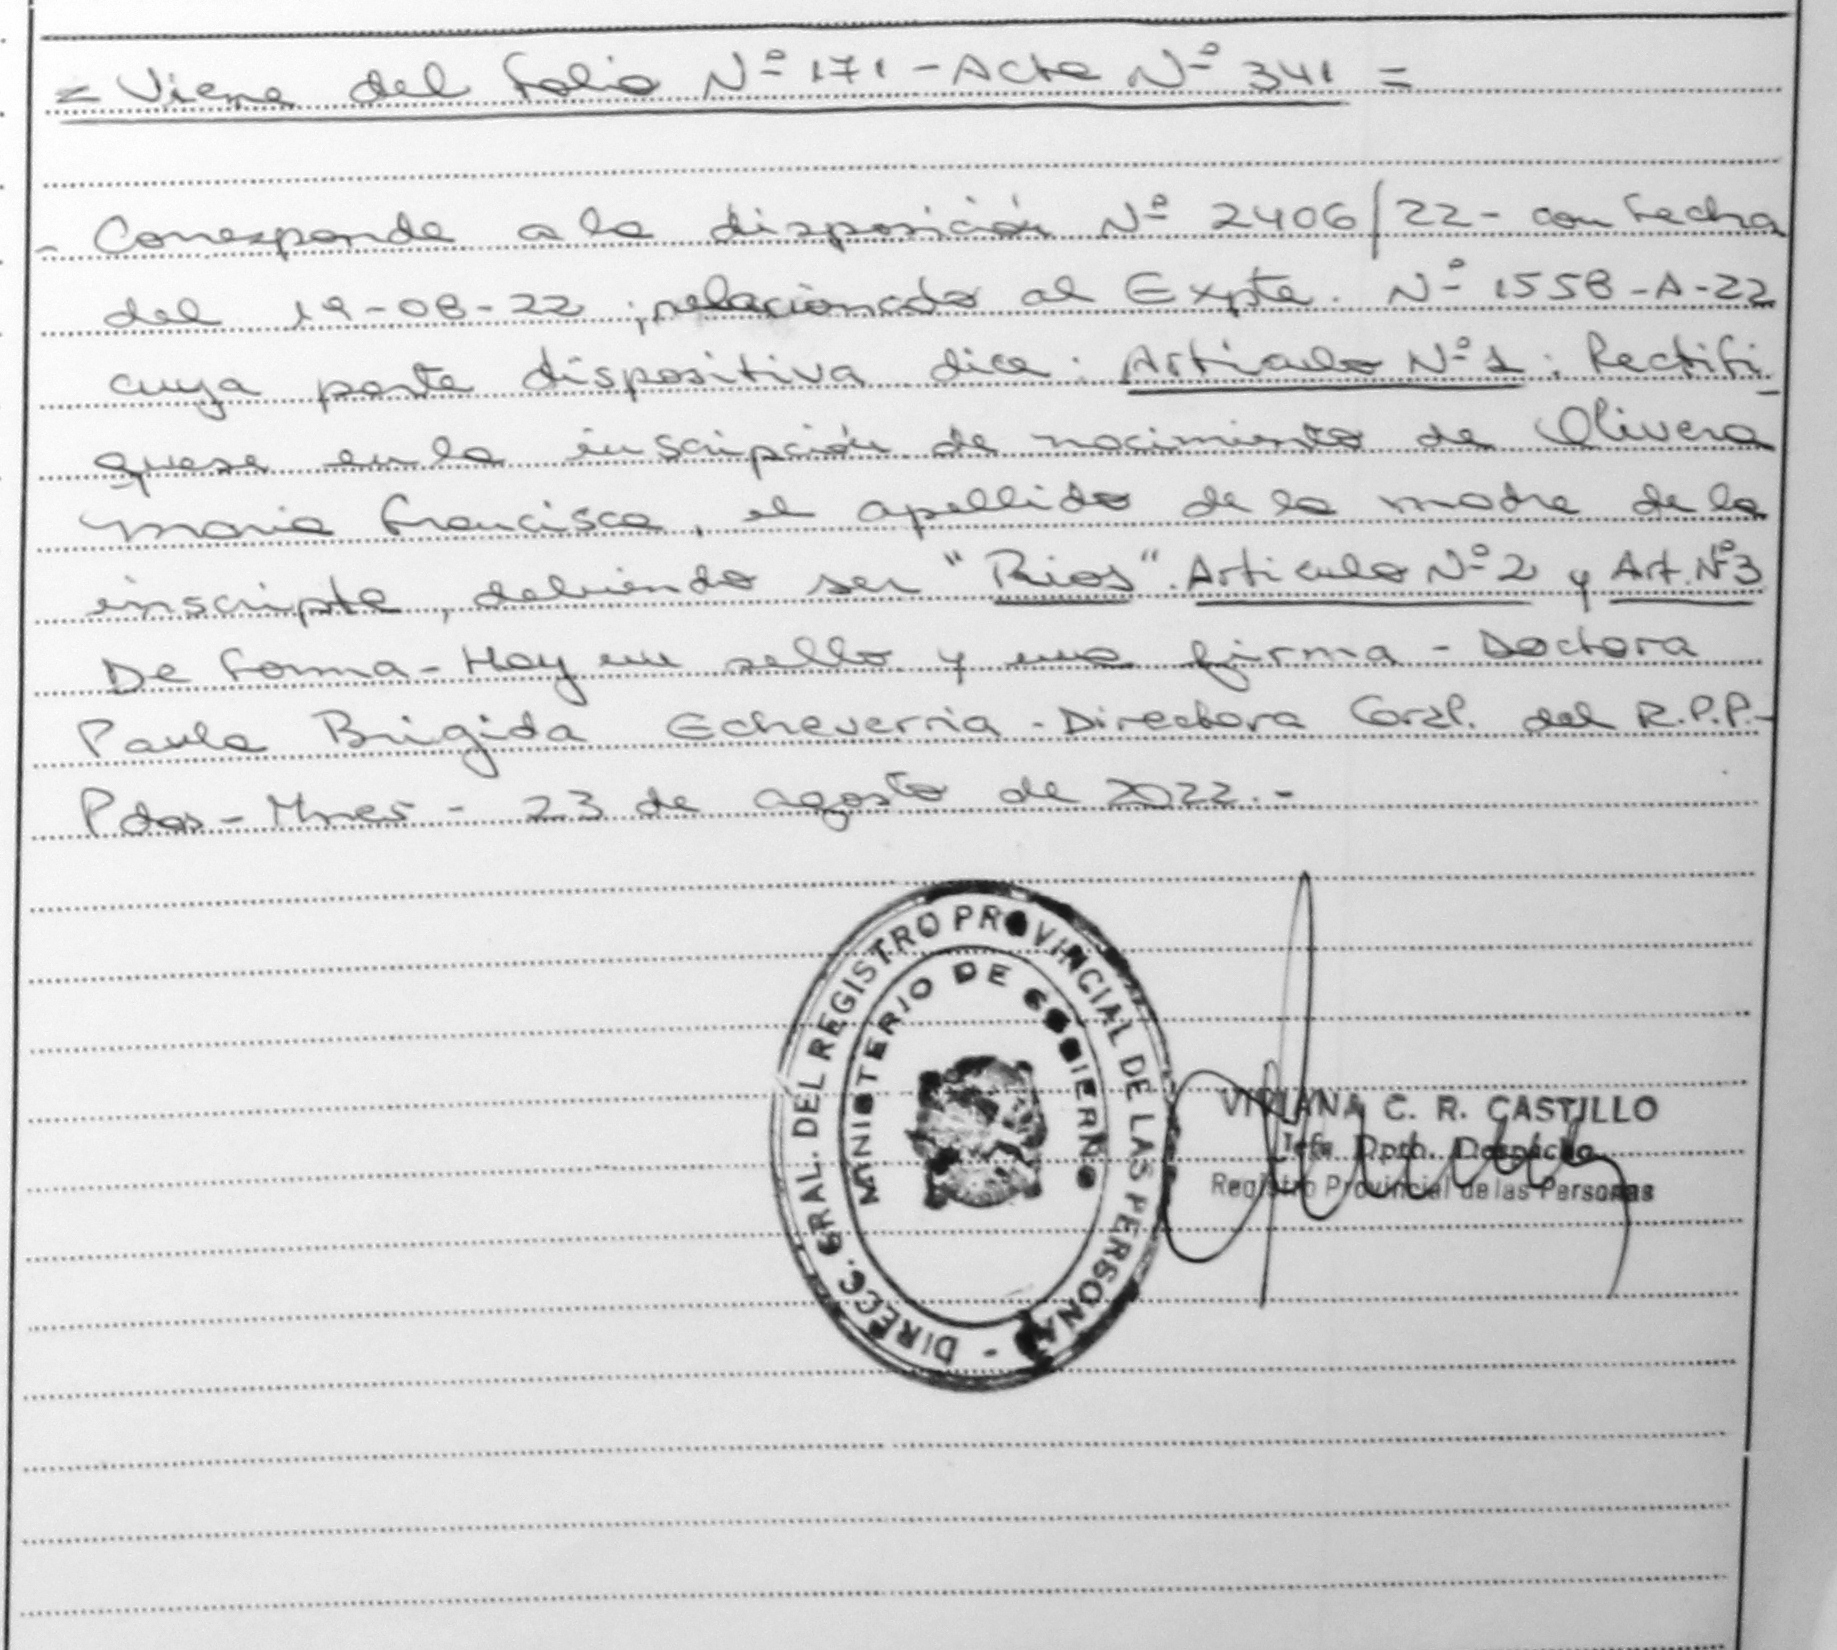 = Viene del folio Nº 171 - Acta Nº 341 =
- Corresponde a la disposición Nº 2406/22 - con fecha
del 19-08-22, relacionado al Expte. Nº 1558-A-22
cuya parte dispositiva dice: Articulo Nº 1: Rectifi-
quese en la inscripción de nacimiento de Olivera
Maria Francisca, el apellido de la madre de la
inscripta, debiendo ser "Rios". Articulo Nº 2 y Art. Nº 3
De forma - Hay un sello y una firma - Doctora
Paula Brigida Echeverria - Directora Gral. del R.P.P.-
Pdas - Mnes - 23 de agosto de 2022.-
DIRECC. GRAL. DEL REGISTRO PROVINCIAL DE LAS PERSONAS -
MINISTERIO DE GOBIERNO
VIVIANA C. R. CASTILLO
Jefa Dpto. Despacho
Registro Provincial de las Personas